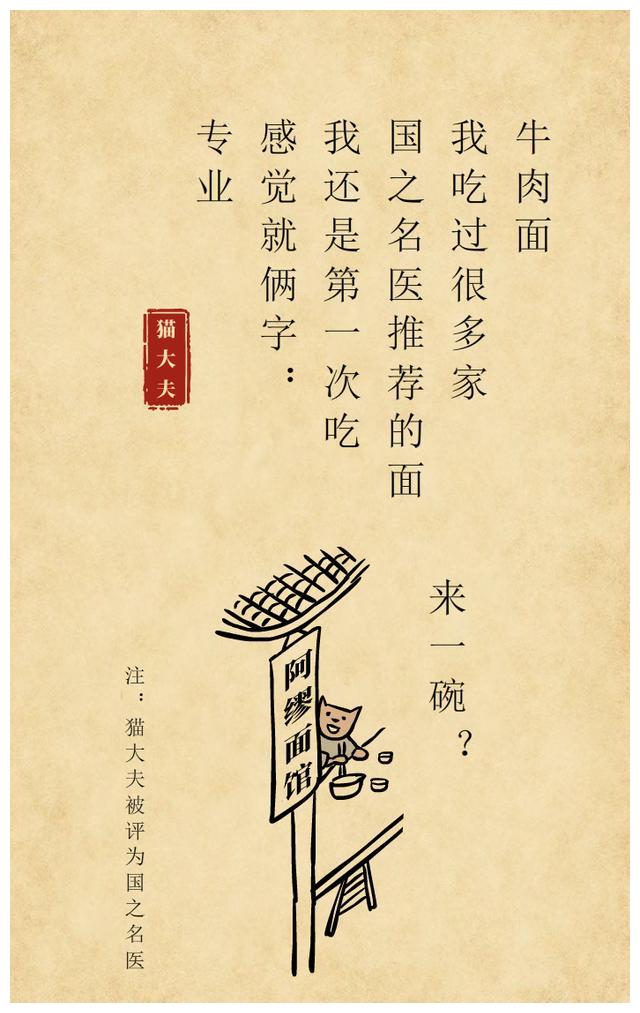 牛肉面
我吃过很多家
国之名医推荐的面
我还是第一次吃
感觉就俩字：
专业
猫大夫
来一碗？
阿缪面馆
注：猫大夫被评为国之名医